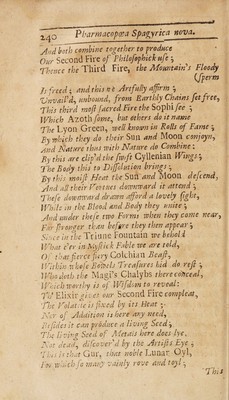 240 Pharmacopœa Spagyrica nova.
And both combine together to produce
Our Second Fire of Philosophick use ;
Thence the Third Fire, the Mountain's Floody
(sperm
Is freed ; and this we Artfully affirm ;
Unvail'd, unbound, from Earthly Chains set free,
This third most sacred Fire the Sophi see ;
Which Azoth some, but others do it name
The Lyon Green, well known in Rolls of Fame ;
By which they do their Sun and Moon conjoyn,
And Nature thus with Nature do Combine :
By this are clip'd the swift Cyllenian Wings ;
The Body this to Dissolution brings ;
By this moist Heat the Sun and Moon descend,
And all their Vertues downward it attend ;
These downward drawn afford a lovely sight,
While in the Blood and Body they unite ;
And under these two Forms when they come near,
Far stronger than before they then appear ;
Since in the Triune Fountain we behold
What e're in Mystick Fable we are told,
Of that fierce fiery Colchian Beast,
Within whose Bowels Treasures hid do rest ;
Who doth the Magi's Chalybs there conceal,
Which worthy is of Wisdom to reveal :
Th' Elixir gives our Second Fire compleat,
The Volatile is fixed by its Heat ;
Nor of Addition is here any need,
Besides it can produce a living Seed ;
The living Seed of Metals here does lye,
Not dead, discover'd by the Artists Eye ;
This is that Gur, that noble Lunar Oyl,
For which so many vainly rove and toyl ;
This